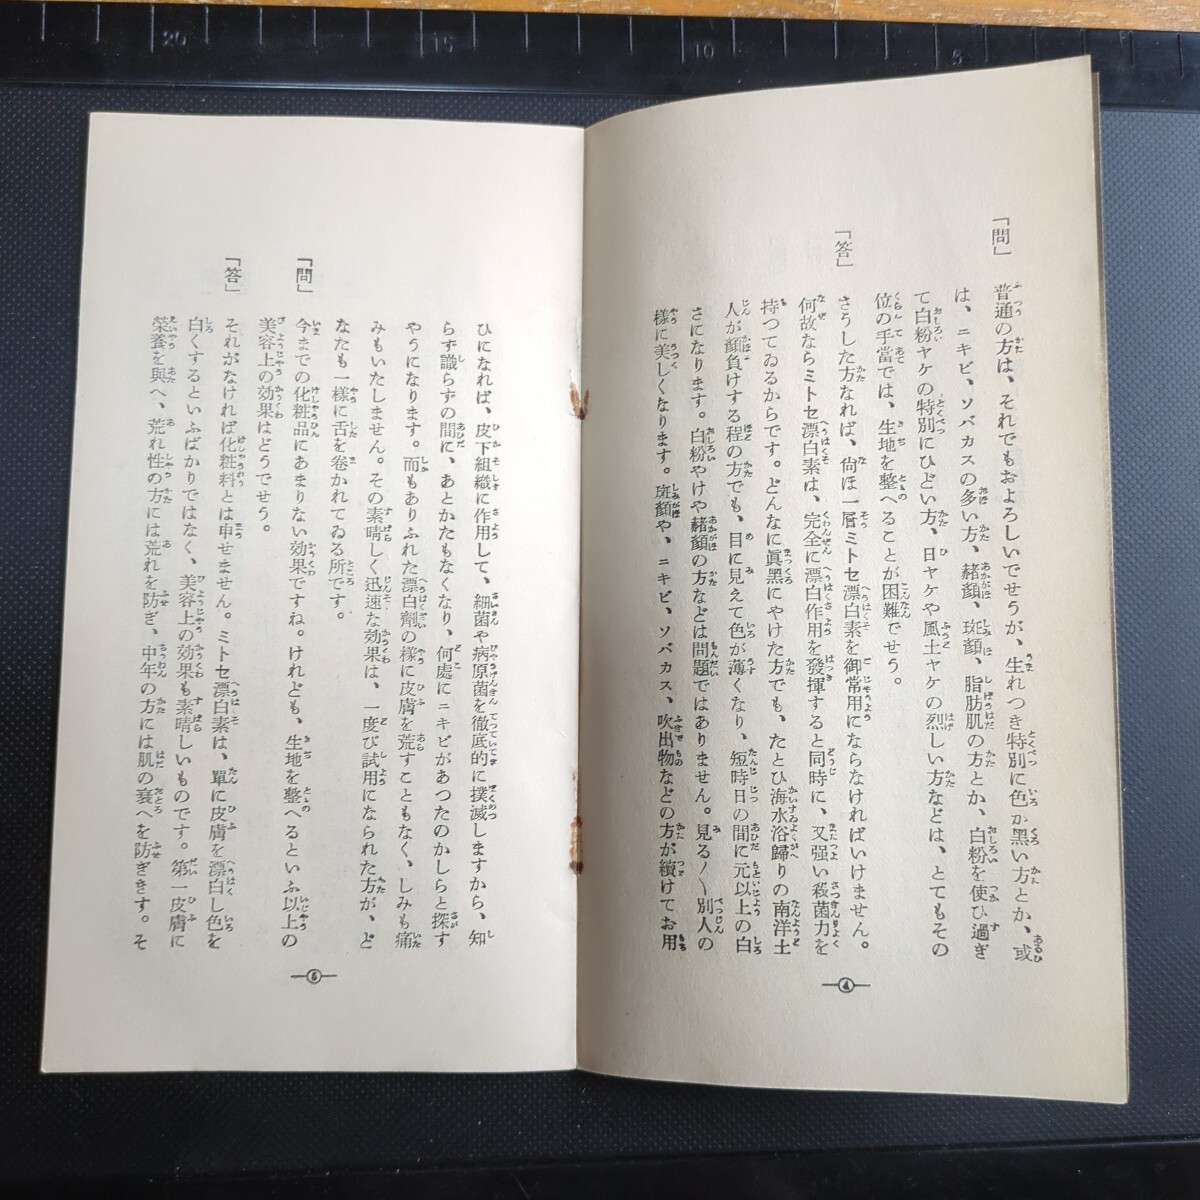 「問」 普通の方は、それでもおよろしいでせうが、生れつき特別に色か黑い方とか、或
は、ニキビ、ソバカスの多い方、赭顏、斑顏、脂肪肌の方とか、白粉を使ひ過ぎ
て白粉ヤケの特別にひどい方、日ヤケや風土ヤケの烈しい方などは、とてもその
位の手當では、生地を整へることが困難でせう。
「答」 さうした方なれば、尙ほ一層ミトセ漂白素を御常用にならなければいけません。
何故ならミトセ漂白素は、完全に漂白作用を發揮すると同時に、又强い殺菌力を
持つてゐるからです。どんなに眞黑にやけた方でも、たとひ海水浴歸りの南洋土
人が顏負けする程の方でも、目に見えて色が薄くなり、短時日の間に元以上の白
さになります。白粉やけや赭顏の方などは問題ではありません。見る〳〵別人の
樣に美しくなります。斑顏や、ニキビ、ソバカス、吹出物などの方が續けてお用
④
ひになれば、皮下組織に作用して、細菌や病原菌を徹底的に撲滅しますから、知
らず識らずの間に、あとかたもなくなり、何處にニキビがあつたのかしらと探す
やうになります。而もありふれた漂白劑の樣に皮膚を荒すこともなく、しみも痛
みもいたしません。その素晴しく迅速な効果は、一度び試用になられた方が、ど
なたも一樣に舌を卷かれてゐる所です。
「問」 今までの化粧品にあまりない効果ですね。けれども、生地を整へるといふ以上の
美容上の効果はどうでせう。
「答」 それがなければ化粧料とは申せません。ミトセ漂白素は、單に皮膚を漂白し色を
白くするといふばかりではなく、美容上の効果も素晴しいものです。第一皮膚に
榮養を與へ、荒れ性の方には荒れを防ぎ、中年の方には肌の衰へを防ぎきす。そ
⑤
20
15
10
5